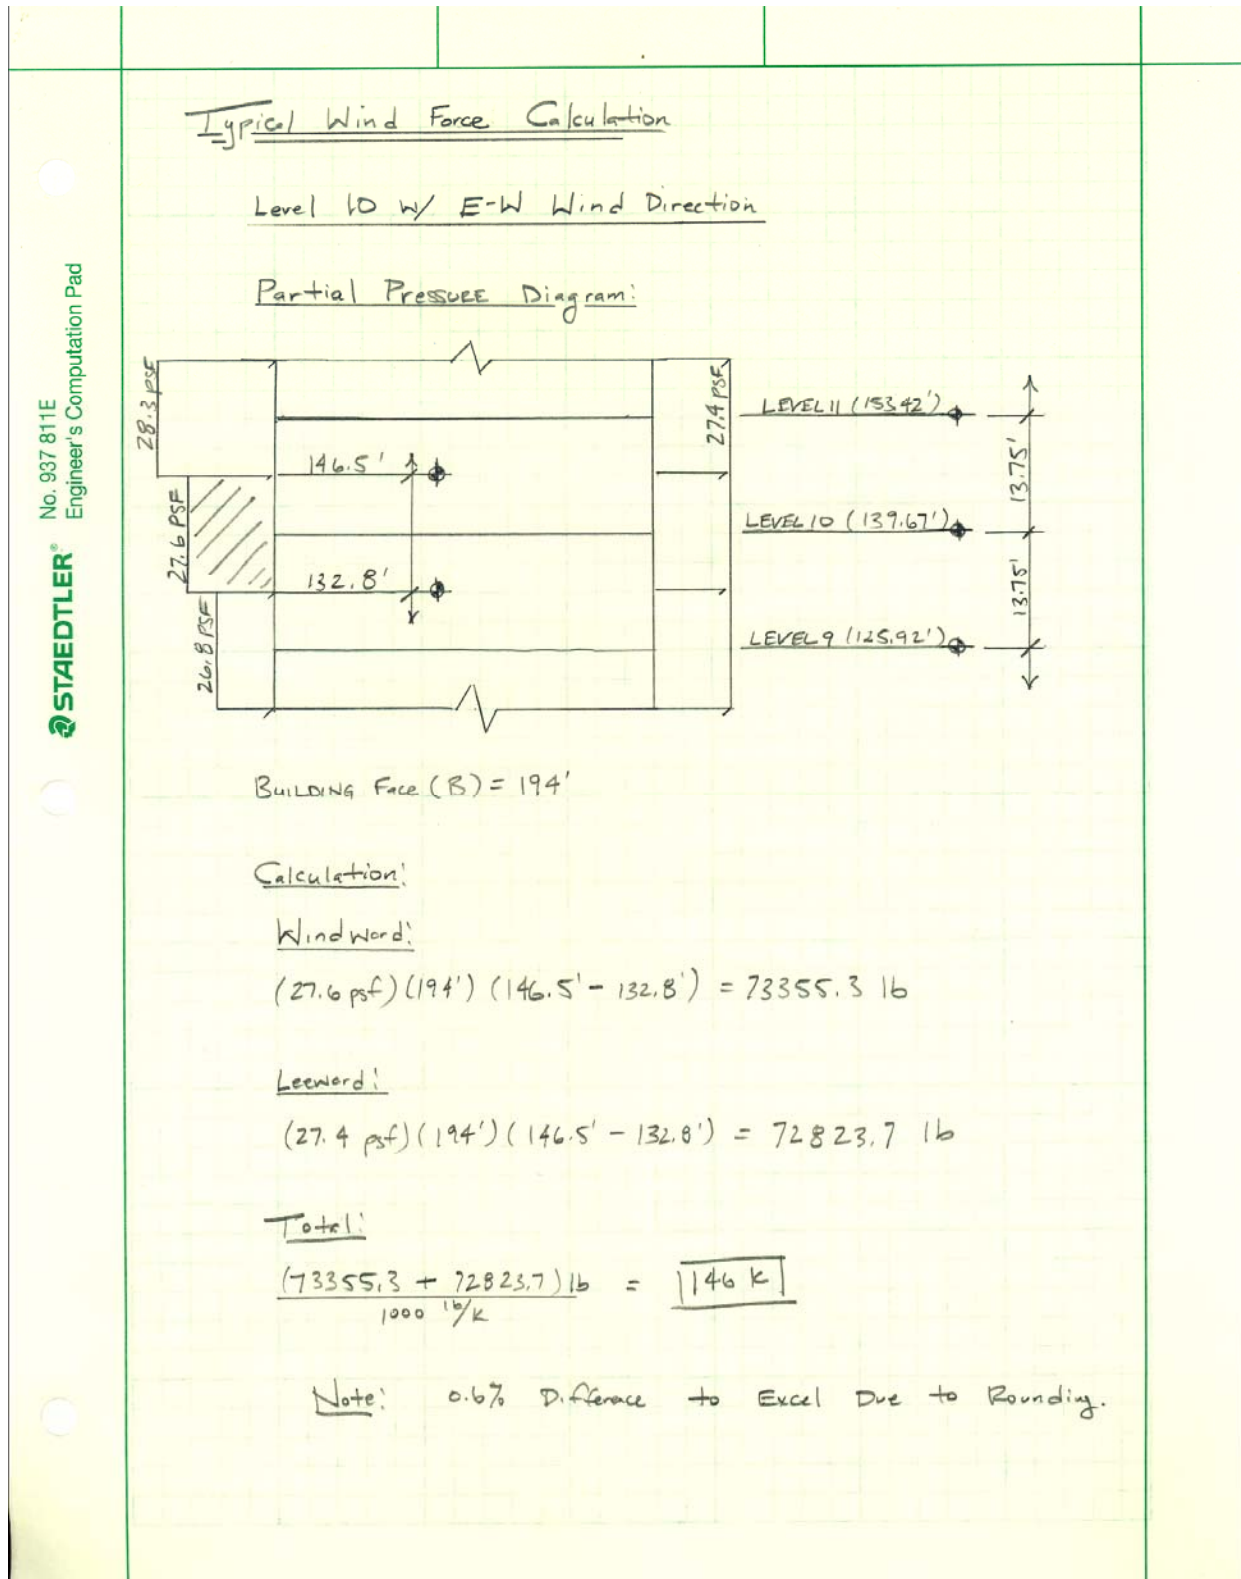 No. 937 811E
Engineer's Computation Pad
STAEDTLER®
Typical Wind Force Calculation
Level 10 w/ E-W Wind Direction
Partial Pressure Diagram:
28.3 PSF
27.6 PSF
26.8 PSF
146.5'
132.8'
27.4 PSF
LEVEL 11 (153.42')
LEVEL 10 (139.67')
LEVEL 9 (125.92')
13.75'
13.75'
BUILDING Face (B) = 194'
Calculation:
Windward:
(27.6 psf)(194') (146.5' - 132.8') = 73355.3 lb
Leeward:
(27.4 psf)(194')(146.5' - 132.8') = 72823.7 lb
Total:
(73355.3 + 72823.7) lb = 146 k
1000 lb/k
Note: 0.6% Difference to Excel Due to Rounding.